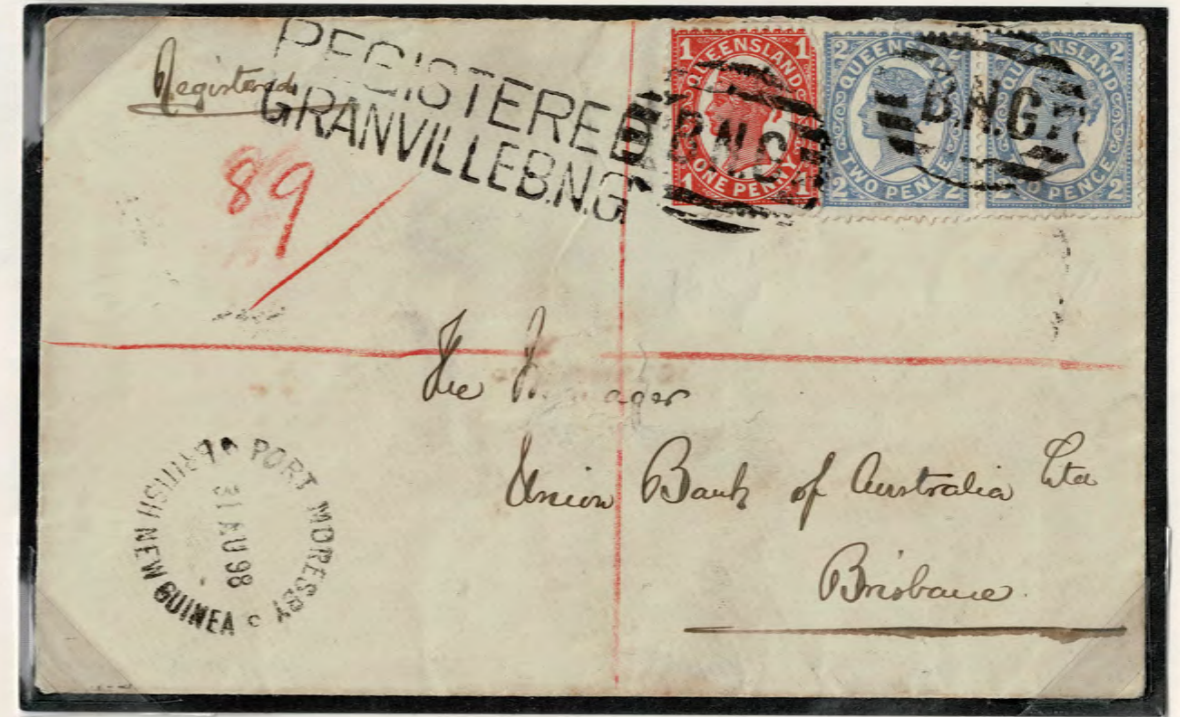 Registered
REGISTERED
GRANVILLE B.N.G.
89
1 QUEENSLAND 1
B.N.G.
1 ONE PENNY 1
2 QUEENSLAND
TWO PENCE
2 2
B.N.G.
QUEENSLAND 2
TWO PENCE
2 2
The Manager
Union Bank of Australia Ltd
Brisbane
PORT MORESBY
31 AU 98
BRITISH NEW GUINEA